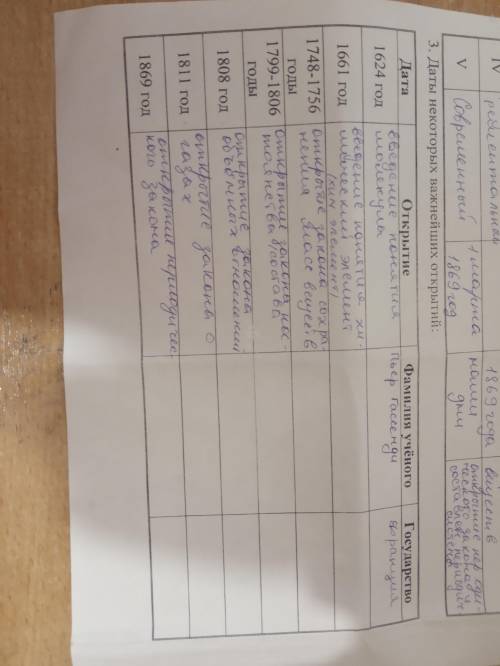 IV
V Современный 1 марта 1869 год
1869 года наши дни
веществ
открытие периодического закона и
3. Даты некоторых важнейших открытий:
Дата Открытие Фамилия учёного Государство
1624 год введение понятия молекула Пьер Гассенди Франция
1661 год введение понятия химический элемент
1748-1756 годы открытие закона сохранения масс веществ
1799-1806 годы открытие закона постоянства состава
1808 год открытие закона объёмных отношений
1811 год открытие закона о газах
1869 год открытие периодического закона